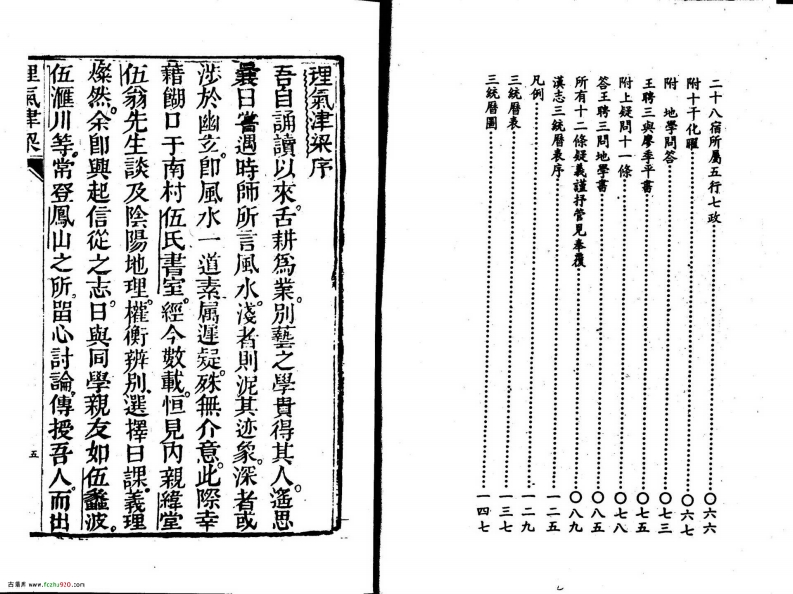 二十八宿所屬五行七政⋯⋯〇六六
附十干化曜⋯⋯〇六七
附 地學問答⋯⋯〇七三
王聘三與廖季平書⋯⋯〇七五
附上疑問十一條⋯⋯〇七八
答王聘三問地學書⋯⋯〇八五
所有十二條疑義謹抒管見奉覆⋯⋯〇八九
漢志三統曆表序⋯⋯一二五
凡例⋯⋯一二九
三統曆表⋯⋯一三七
三統曆圖⋯⋯一四七
理氣津梁序
吾自誦讀以來。舌耕爲業。別藝之學。貴得其人。遙思
曩日嘗遇時師所言風水。淺者則泥其迹象。深者或
涉於幽玄。卽風水一道。素屬遲疑。殊無介意。此際幸
藉餬口于南村伍氏書室。經今數載。恒見內親緯堂
伍翁先生談及陰陽地理。權衡辨別。選擇日課。義理
燦然。余卽興起信從之志。日與同學親友如伍蠡波。
伍滙川等。常登鳳山之所。留心討論。傳授吾人。而出
理氣津梁
五
古易库 www.fczhu920.com